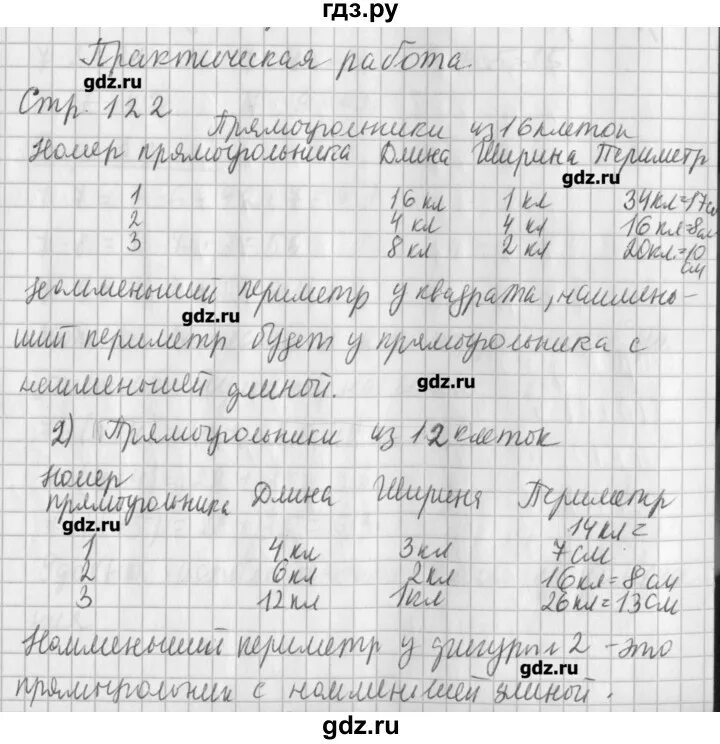 гдз.ру
Практическая работа.
gdz.ru
Стр. 122
Прямоугольники из 16 клеток
Номер прямоугольника Длина Ширина Периметр
gdz.ru
1 16 кл 1 кл 34кл=17см
2 4 кл 4 кл 16 кл=8см
3 8 кл 2 кл 20кл.=10
см
Наименьший периметр у квадрата, наимень-
gdz.ru
ший периметр будет у прямоугольника с
наименьшей длиной.
gdz.ru
2) Прямоугольники из 12 клеток
Номер
прямоугольника Длина Ширина Периметр
gdz.ru
14кл=
1 4кл 3кл 7см
2 6кл 2кл 16кл=8см
3 12кл 1кл 26кл=13см
Наименьший периметр у фигуры 2 - это
gdz.ru
прямоугольник с наименьшей длиной.
gdz.ru